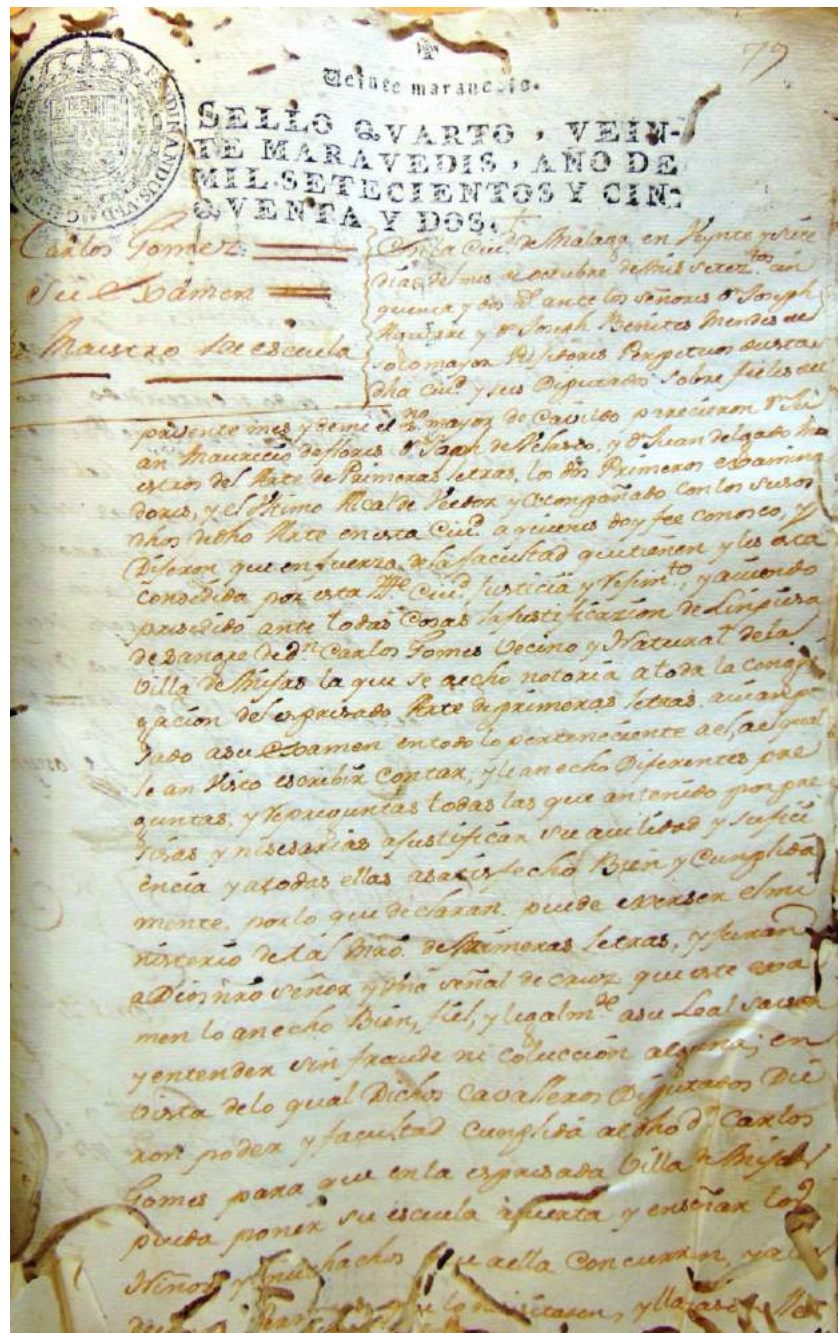 79
Veinte maravedis.
SELLO QVARTO, VEIN-
TE MARAVEDIS, AÑO DE
MIL SETECIENTOS Y CIN-
QVENTA Y DOS.
FERDINANDUS VI D G
Carlos Gomez
Su Examen
de Maestro de escuela
En la Ciud. de Malaga en Veynte y siete
dias del mes de octubre de mil setez.tos cin
quenta y dos as ante los señores Dn Joseph
y Dn Joseph Benites Mendes de
sotomayor Rejidores Perpetuos de esta
dha Ciud. y sus Diputados sobre fieles del
presente mes y de mi el mayor de Cavildo parecieron Dn Ju
an Mauricio de flores Dn Juan de Velasco, y Dn Juan delgado Ma
estros del Arte de Primeras letras, los dos Primeros examina
dores, y el Ultimo Alcalde Veedor y Acompañado con los susso
dhos de dho Arte en esta Ciud. a quienes doy fee conosco, y
Dijeron que en fuerza de la facultad que tienen y les esta
Consedida por esta Ciud. Justicia y Rejim.to, y auiendo
presedido ante todas Cosas la justificazion de Linpiesa
de sangre de dn Carlos Gomes Vecino y Natural de la
Villa de Mijas la que se a echo notoria a toda la congre
gacion del espresado Arte de primeras letras, auian p
sado a su Examen en todo lo perteneciente a el, al qual
le an Visto escribir Contar, y le an echo Diferentes pre
guntas, y Repreguntas todas las que an tenido por pre
sisas y nesesarias a justificar su auilidad y sufici
encia y a todas ellas a satisfecho Bien y Cunplida
mente, por lo que declaran puede exerser el mi
nisterio de tal Mro. de Primeras letras, y juran
a Dios nro señor y una señal de cruz que este exa
men lo an echo Bien, fiel, y legalm.te a su Leal saver
y entender sin fraude ni Colucción alguna; en
Vista de lo qual Dichos Cavalleros Diputados Die
ron poder y facultad Cunplida al dho dn Carlos
Gomes para que en la espresada Villa de Mijas
pueda poner su escuela avierta y enseñar los
Niños y muchachos que a ella Concurran, y a los
que lo nesesitaren, y